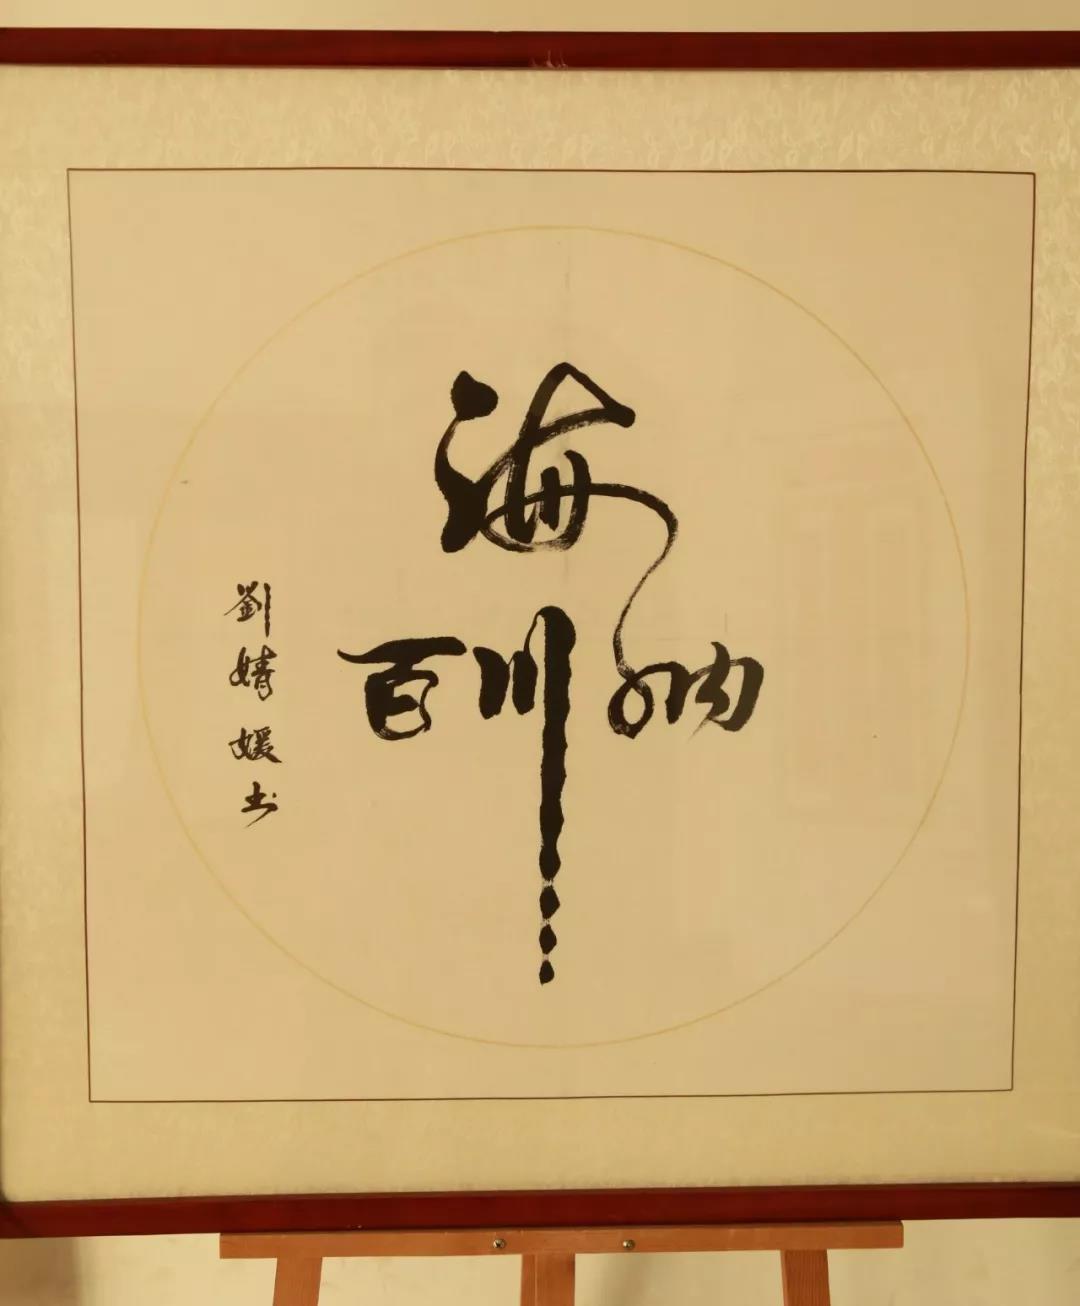 海
纳
川
百
劉婧媛书